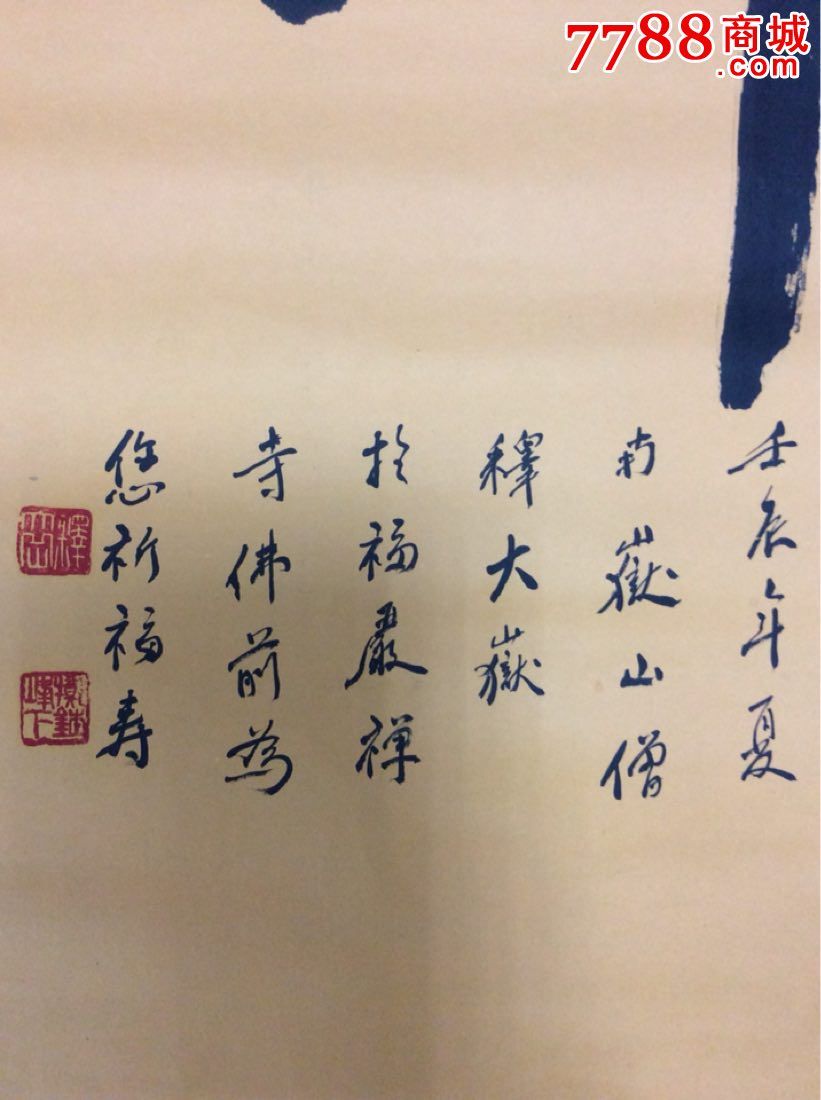 7788商城
.com
壬辰年夏
南嶽山僧
釋大嶽
於福嚴禪
寺佛前為
您祈福壽